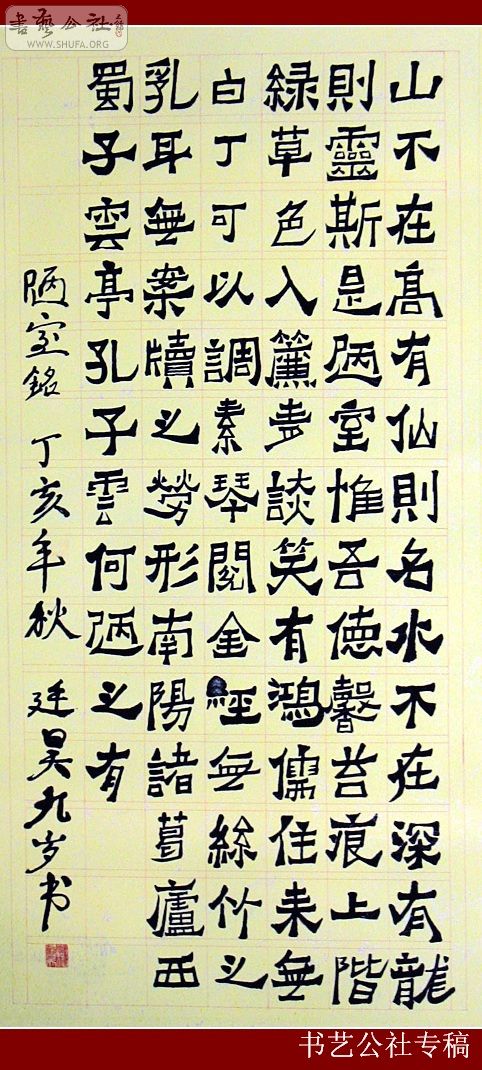 書藝公社
WWW.SHUFA.ORG
山不在高有仙則名水不在深有龍
則靈斯是陋室惟吾德馨苔痕上階
緑草色入簾青談笑有鴻儒往来無
白丁可以調素琴閱金經無絲竹之
乳耳無案牘之勞形南陽諸葛廬西
蜀子雲亭孔子雲何陋之有
陋室銘 丁亥年秋 廷昊九岁书
书艺公社专稿